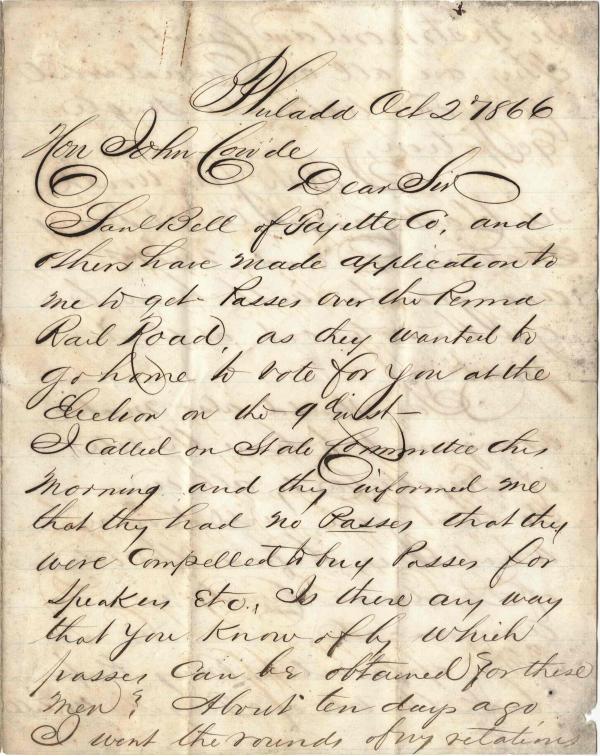 Philadd Oct 2d 1866
Hon John Covode
Dear Sir
Saml Bell of Fayette Co, and
others have made application to
me to get Passes over the Penna
Rail Road, as they wanted to
go home to vote for you at the
Election on the 9th inst—
I Called on State Committee this
morning and they informed me
that they had no Passes that they
were Compelled to buy Passes for
Speakers Etc., Is there any way
that You Know of by which
passes can be obtained for these
men? About ten days ago
I went the rounds of my relations